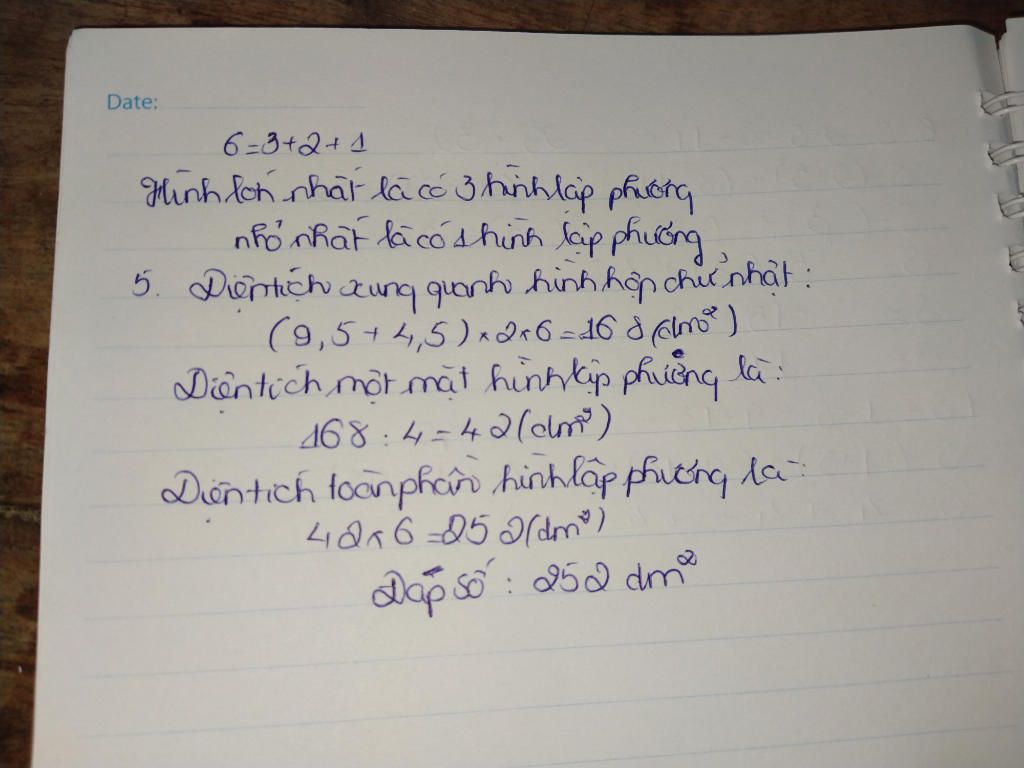 Date:
6=3+2+1
Hình lớn nhất là có 3 hình lập phương
nhỏ nhất là có 1 hình lập phương
5. Diện tích xung quanh hình hộp chữ nhật:
(9,5+4,5)×2×6=168(dm²)
Diện tích một mặt hình lập phương là:
168:4=42(dm²)
Diện tích toàn phần hình lập phương là:
42×6=252(dm²)
Đáp số: 252 dm²